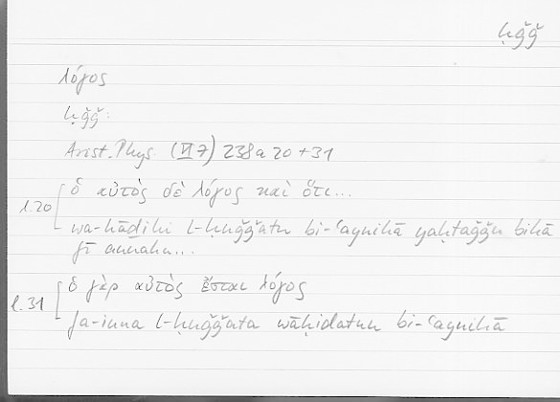 ḥǧǧ
λόγος
ḥǧǧ:
Arist. Phys. (VI 7) 238a20+31
l.20 ὁ αὐτὸς δὲ λόγος καὶ ὅτι...
wa-hāḏihi l-ḥuǧǧatu bi-ʿaynihā yaḥtaǧǧu bihā
fī annahu...
l.31 ὁ γὰρ αὐτὸς ἔσται λόγος
fa-inna l-ḥuǧǧata wāḥidatun bi-ʿaynihā